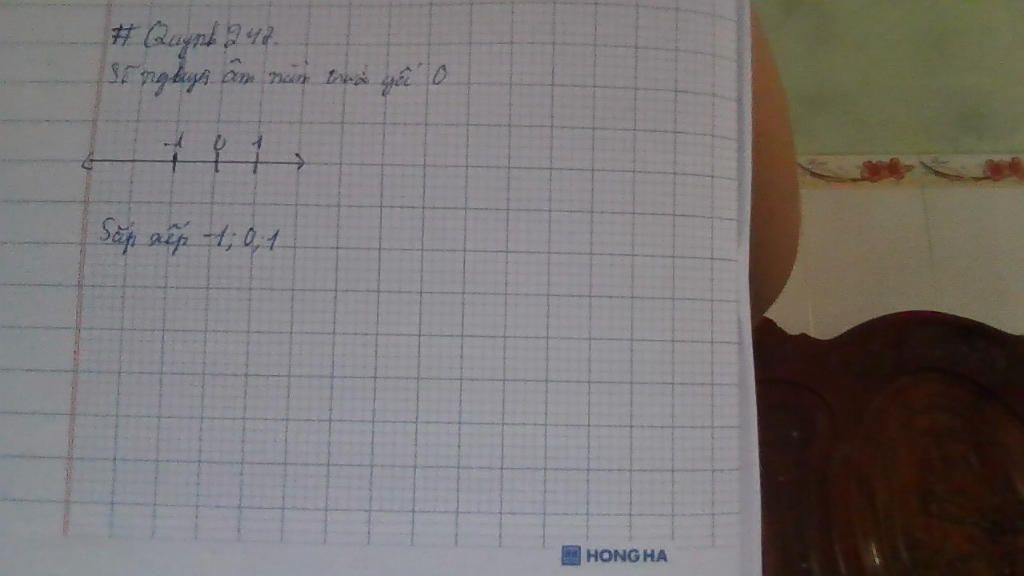 # Quynh248.
Số nguyên âm nằm trước gốc 0
-1 0 1
Sắp xếp -1; 0; 1
HONG HA